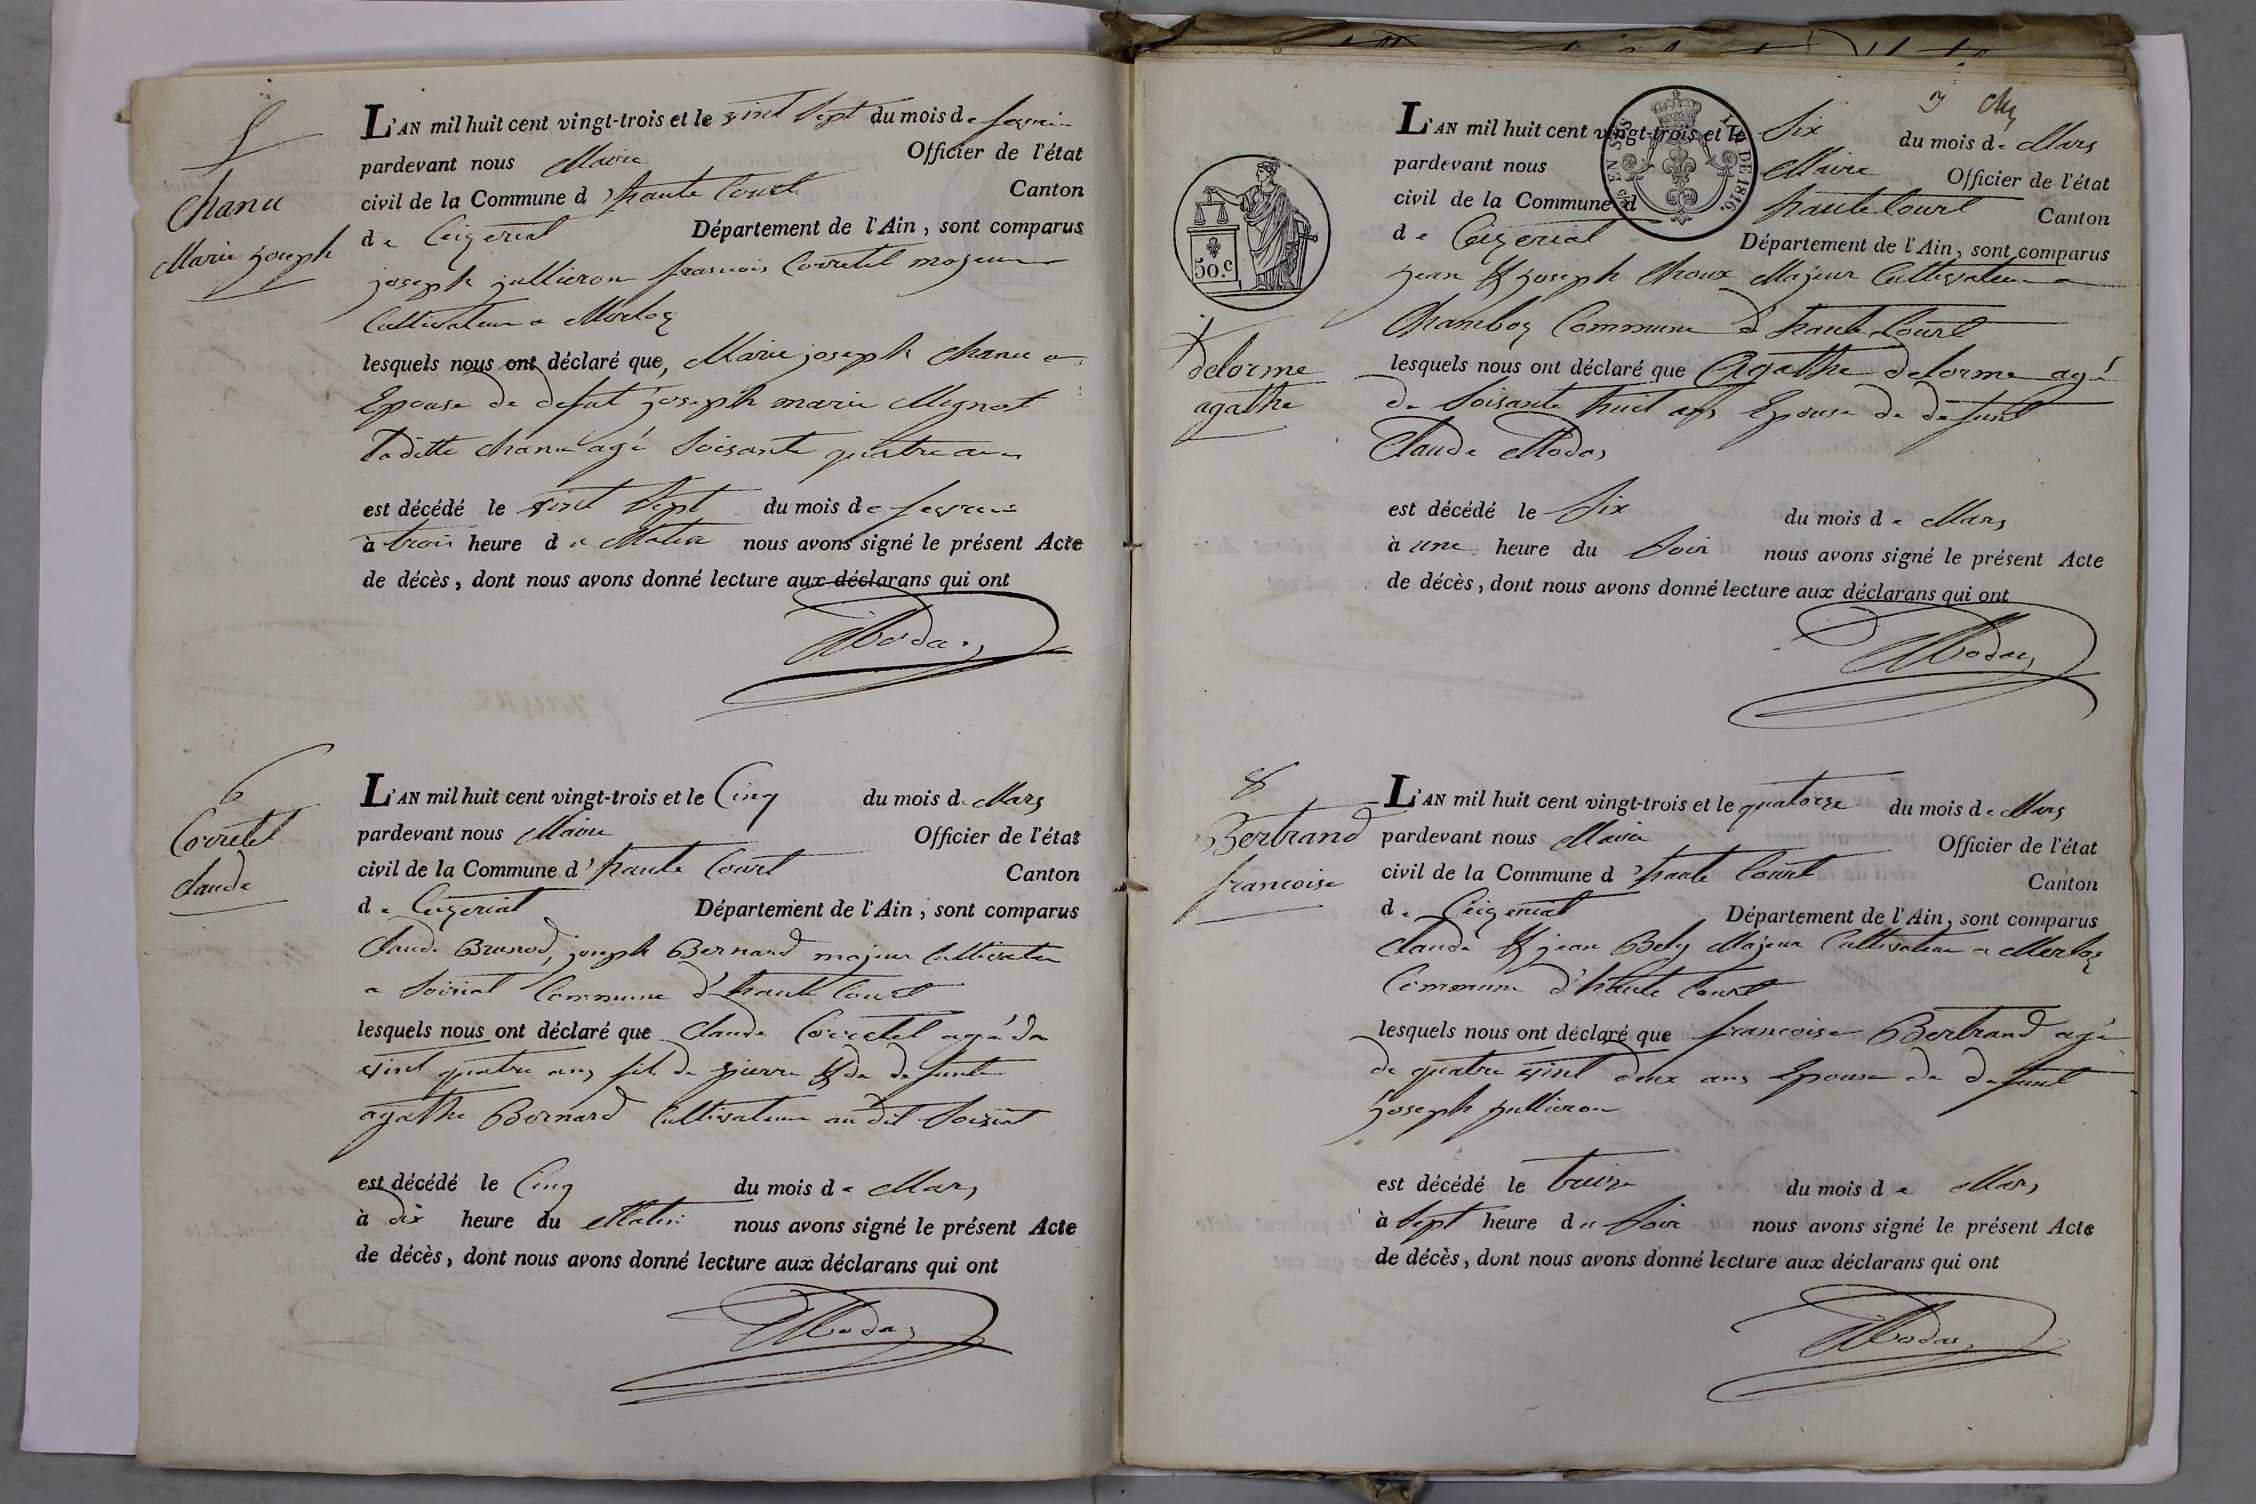 5
chanu
Marie joseph
L'AN mil huit cent vingt-trois et le vint sept du mois de fevrie
pardevant nous Maire Officier de l'état
civil de la Commune d'haute Court Canton
de Ceizeriat Département de l'Ain, sont comparus
joseph jullieron francois Corretel majeur
Cultivateur a Merloz
lesquels nous ont déclaré que, Marie joseph chanu
Epouse de defut joseph marie Mignot
laditte chanu agé soisante quatre ans
est décédé le vint sept du mois de fevrier
à trois heure du Matin nous avons signé le présent Acte
de décès, dont nous avons donné lecture aux déclarans qui ont
Modas
6
Corretel
claude
L'AN mil huit cent vingt-trois et le Cinq du mois de Mars
pardevant nous Maire Officier de l'état
civil de la Commune d'haute Court Canton
de Ceizeriat Département de l'Ain, sont comparus
claude Brunod, joseph Bernard majeur Cultivateu
a soiriat Commune d'haute Court
lesquels nous ont déclaré que claude Corretel agé de
vint quatre ans fils de pierre & de defunte
agathe Bernard Cultivateur au dit soiriat
est décédé le Cinq du mois de Mars
à dix heure du Matin nous avons signé le présent Acte
de décès, dont nous avons donné lecture aux déclarans qui ont
Modas
50.c
EN SUS
LOI DE 1816.
7
delorme
agathe
L'AN mil huit cent vingt-trois et le Six du mois de Mars
pardevant nous Maire Officier de l'état
civil de la Commune d haute Court Canton
de Ceizeriat Département de l'Ain, sont comparus
jean & joseph choux Majeur Cultivateur a
Chamboz Commune d'haute Court
lesquels nous ont déclaré que Agathe delorme agé
de soisante huit ans Epouse de defunt
Claude Modas
est décédé le Six du mois de Mars
à une heure du soir nous avons signé le présent Acte
de décès, dont nous avons donné lecture aux déclarans qui ont
Modas
8
Bertrand
francoise
L'AN mil huit cent vingt-trois et le quatorze du mois de Mars
pardevant nous Maire Officier de l'état
civil de la Commune d'haute Court Canton
de Ceizeriat Département de l'Ain, sont comparus
claude & jean Bely Majeur Cultivateur a Merloz
Commune d'haute Court
lesquels nous ont déclaré que francoise Bertrand agé
de quatre vint deux ans Epouse de defunt
joseph jullieron
est décédé le treize du mois de Mars
à sept heure du soir nous avons signé le présent Acte
de décès, dont nous avons donné lecture aux déclarans qui ont
Modas